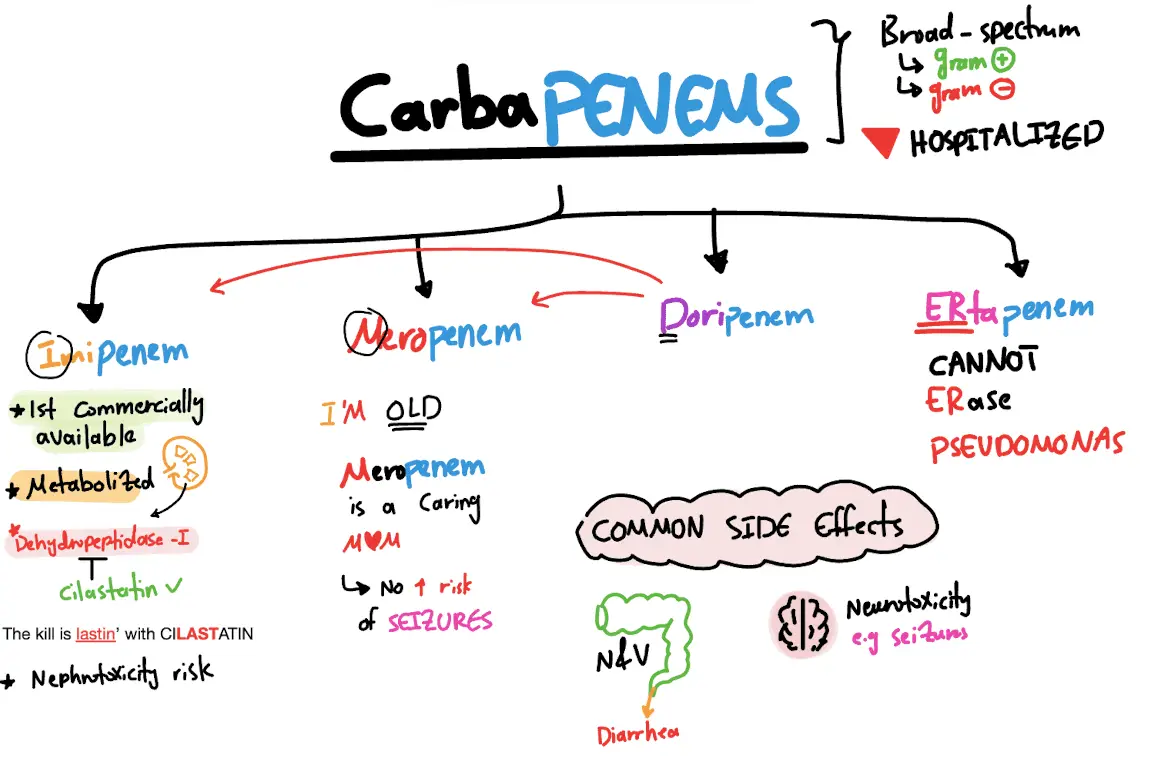 CarbaPENEMS
Broad-spectrum
↳ gram ⊕
↳ gram ⊖
HOSPITALIZED
Imipenem
* 1st Commercially
available
* Metabolized
* Dehydropeptidase-I
Cilastatin ✓
The kill is lastin' with CILASTATIN
* Nephrotoxicity risk
Meropenem
I'M OLD
Meropenem
is a Caring
M♥M
↳ No ↑ risk
of SEIZURES
Doripenem
ERtapenem
CANNOT
ERase
PSEUDOMONAS
COMMON SIDE Effects
N&V
Diarrhea
Neurotoxicity
e.g seizures